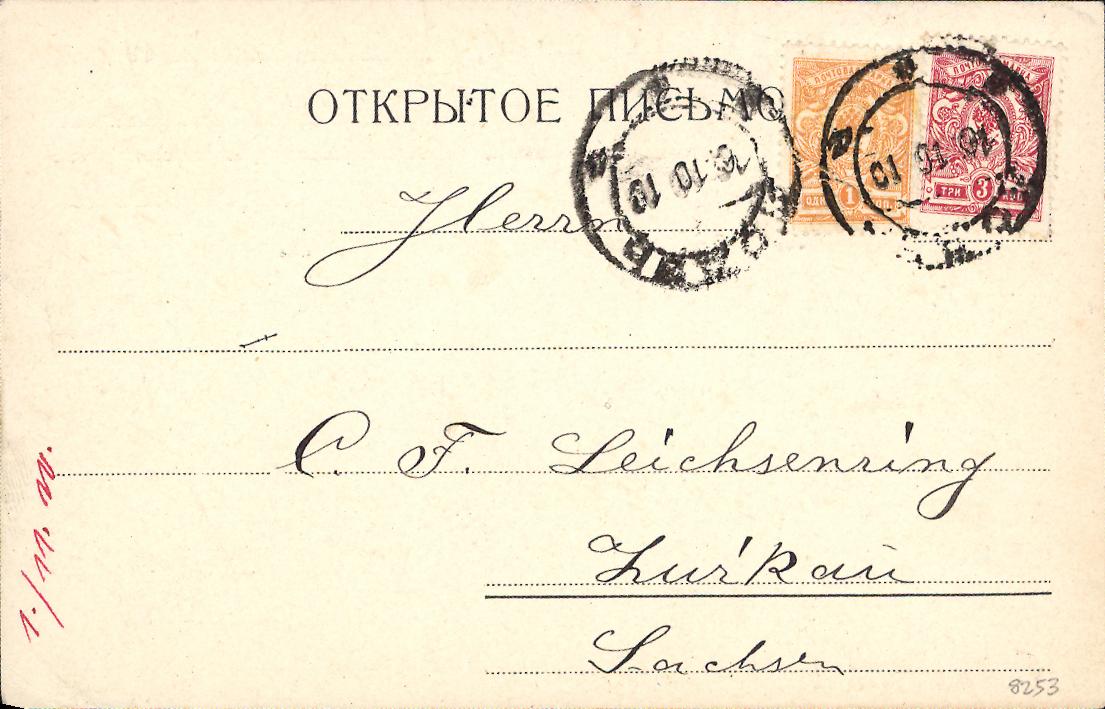 ОТКРЫТОЕ ПИСЬМО
ПОЧТОВАЯ МАРКА
1
ПОЧТОВАЯ МАРКА
ТРИ 3 КОП
16.10 10
Herrn
C. F. Leichsenring
Zwickau
Sachsen
1./11. 10.
8253